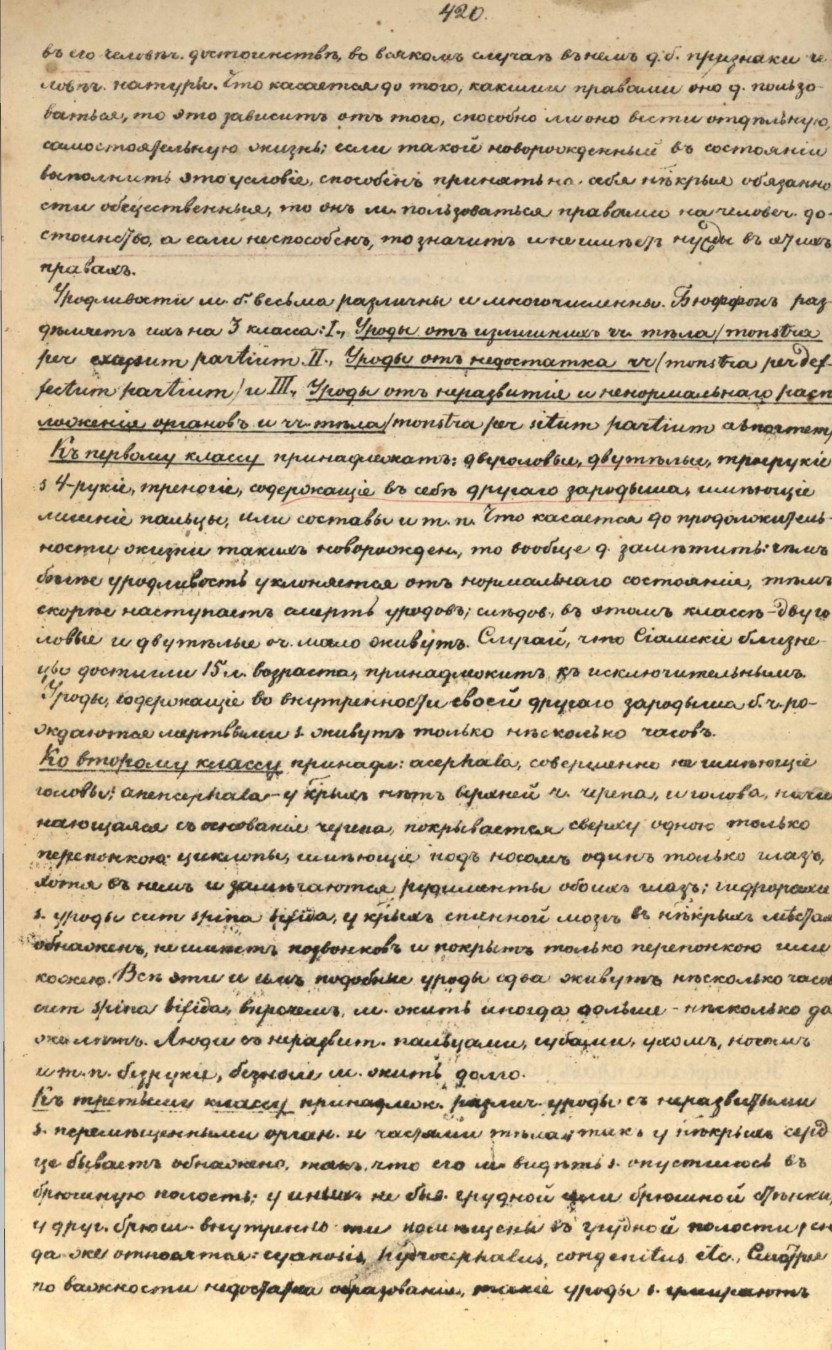 420.
въ его человѣч. достоинствѣ, во всякомъ случаѣ въ немъ д. б. признаки че
ловѣч. натуры. Что касается до того, какими правами оно д. пользо-
ваться, то это зависитъ отъ того, способно ли оно вести отдѣльную,
самостоятельную жизнь; если такой новорожденный въ состояніи
выполнить это условіе, способенъ принять на себя нѣкрыя обязанно
сти общественныя, то онъ м. пользоваться правами на человѣч. до-
стоинство, а если неспособенъ, то значитъ и не имѣетъ нужды въ этихъ
правахъ.
Уродливости м. б. весьма различны и многочисленны. Бюффонъ раз-
дѣляетъ ихъ на 3 класса: I., Уроды отъ излишнихъ чч. тѣла /monstra
per excessum partium II., Уроды отъ недостатка чч /monstra per def-
fectum partium/ и III., Уроды отъ неразвитія и ненормальнаго распо
ложенія органовъ и чч. тѣла /monstra per situm partium
Къ первому классу принадлежатъ: двуголовые, двутѣлые, трирукіе
s 4-рукіе, треногіе, содержащіе въ себѣ другаго зародыша, имѣющіе
лишніе пальцы, или составы и т. п. Что касается до продолжитель-
ности жизни такихъ новорожден., то вообще д. замѣтить: чѣмъ
болѣе уродливость уклоняется отъ нормальнаго состоянія, тѣмъ
скорѣе наступаетъ смерть уродовъ; слѣдов., въ этомъ классѣ - двуго
ловые и двутѣлые оч. мало живутъ. Случай, что Сіамскіе близне-
цы достигли 15 л. возраста, принадлежитъ къ исключительнымъ.
Уроды, содержащіе во внутренности своей другаго зародыша б. ч. ро-
ждаются мертвыми s. живутъ только нѣсколько часовъ.
Ко второму классу принадл: acephala, совершенно не имѣющіе
головы; anencephala - у крыхъ нѣтъ верхней ч. черепа, и голова, начи
нающаяся съ основанія черепа, покрывается сверху одною только
перепонкою; циклопы, имѣющіе подъ носомъ одинъ только глазъ,
хотя въ немъ и замѣчаются рудименты обоихъ глазъ;
s. уроды cum spina bifida, у крыхъ спинной мозгъ въ нѣкрыхъ мѣстахъ
обнаженъ, не имѣетъ позвонковъ и покрытъ только перепонкою или
кожею. Всѣ эти и имъ подобные уроды едва живутъ нѣсколько часов
cum spina bifida, впрочемъ, м. жить иногда дольше - нѣсколько да
же лѣтъ. Люди съ неразвит. пальцами, губами, ухомъ, носомъ
и т. п. безрукіе, безногіе м. жить долго.
Къ третьему классу принадлеж. различ. уроды съ неразвитыми
s. перемѣщенными орган. и частями тѣла, такъ у нѣкрыхъ серд
це бываетъ обнажено, такъ, что его м. видѣть s. опустилось въ
брюшную полость; у иныхъ не был. грудной или брюшной стѣнки,
у друг. брюш. внутренности помѣщены въ грудной полости; сю
да же относятся: cyanosis, hydrocephalus, congenitus etc., Смотря
по важности недостатка образованія, такіе уроды s. умираютъ